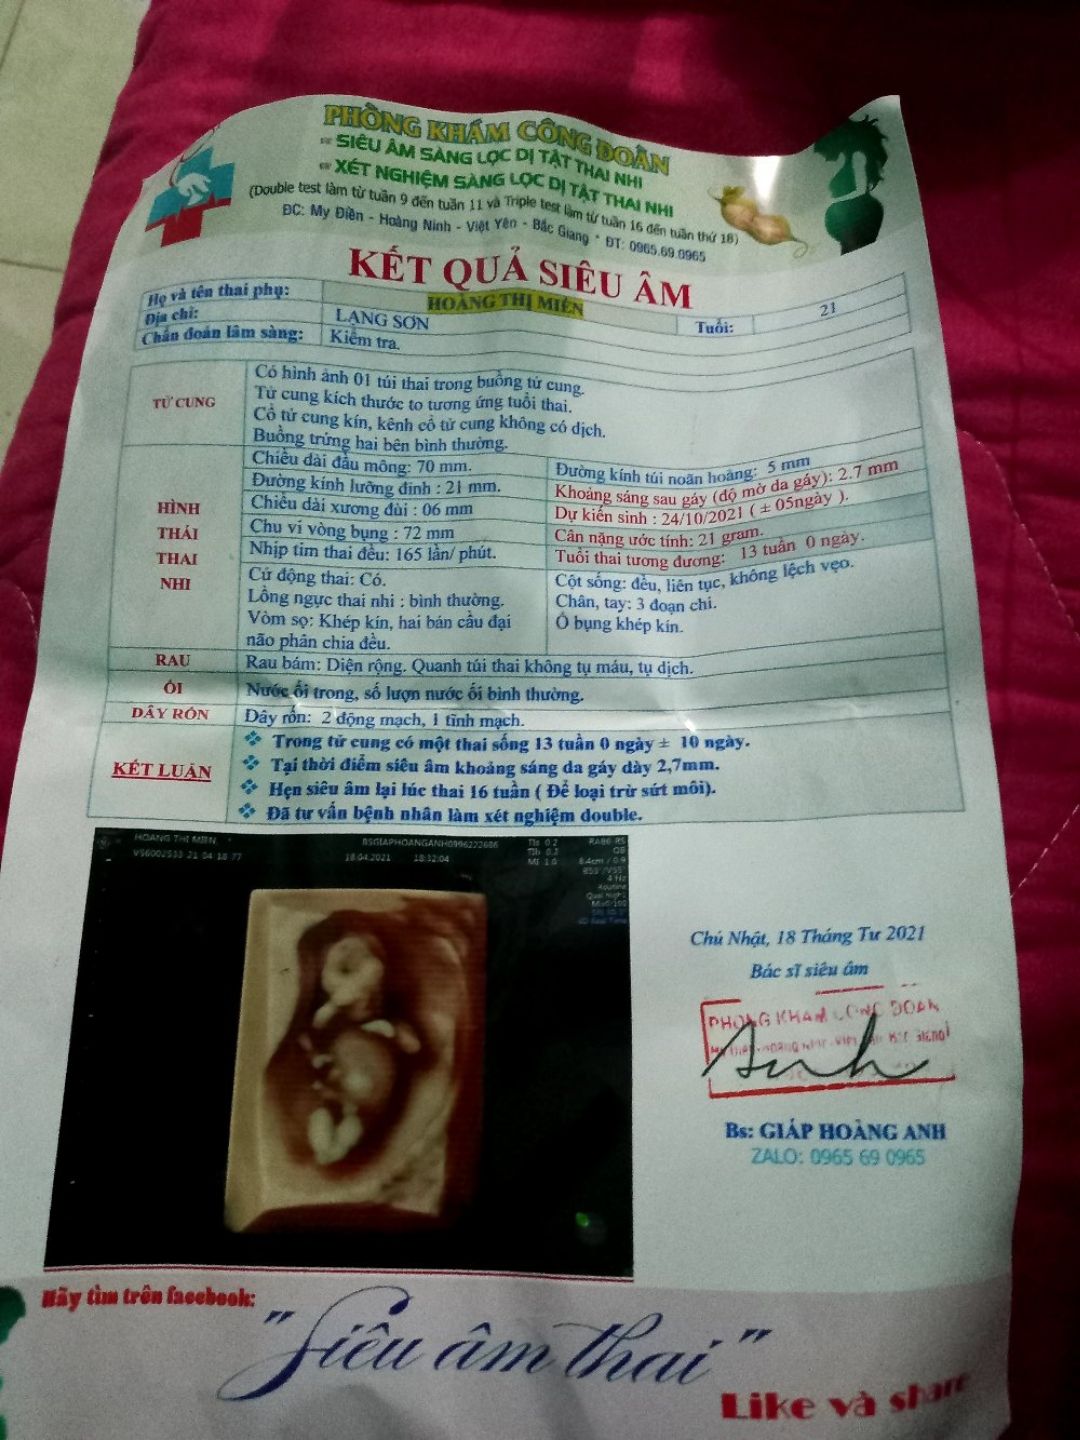 PHÒNG KHÁM CÔNG ĐOÀN
SIÊU ÂM SÀNG LỌC DỊ TẬT THAI NHI
XÉT NGHIỆM SÀNG LỌC DỊ TẬT THAI NHI
(Double test làm từ tuần 9 đến tuần 11 và Triple test làm từ tuần 16 đến tuần thứ 18)
ĐC: My Điền - Hoàng Ninh - Việt Yên - Bắc Giang * ĐT: 0965.69.0965
KẾT QUẢ SIÊU ÂM
Họ và tên thai phụ: HOÀNG THỊ MIÊN
Địa chỉ: LẠNG SƠN Tuổi: 21
Chẩn đoán lâm sàng: Kiểm tra.
TỬ CUNG
Có hình ảnh 01 túi thai trong buồng tử cung.
Tử cung kích thước to tương ứng tuổi thai.
Cổ tử cung kín, kênh cổ tử cung không có dịch.
Buồng trứng hai bên bình thường.
HÌNH THÁI THAI NHI
Chiều dài đầu mông: 70 mm. Đường kính túi noãn hoàng: 5 mm
Đường kính lưỡng đỉnh : 21 mm. Khoảng sáng sau gáy (độ mờ da gáy): 2.7 mm
Chiều dài xương đùi : 06 mm Dự kiến sinh : 24/10/2021 ( ± 05ngày ).
Chu vi vòng bụng : 72 mm Cân nặng ước tính: 21 gram.
Nhịp tim thai đều: 165 lần/ phút. Tuổi thai tương đương: 13 tuần 0 ngày.
Cử động thai: Có. Cột sống: đều, liên tục, không lệch vẹo.
Lồng ngực thai nhi : bình thường. Chân, tay: 3 đoạn chi.
Vòm sọ: Khép kín, hai bán cầu đại Ổ bụng khép kín.
não phân chia đều.
RAU Rau bám: Diện rộng. Quanh túi thai không tụ máu, tụ dịch.
ỐI Nước ối trong, số lượn nước ối bình thường.
DÂY RỐN Dây rốn: 2 động mạch, 1 tĩnh mạch.
KẾT LUẬN
Trong tử cung có một thai sống 13 tuần 0 ngày ± 10 ngày.
Tại thời điểm siêu âm khoảng sáng da gáy dày 2,7mm.
Hẹn siêu âm lại lúc thai 16 tuần ( Để loại trừ sứt môi).
Đã tư vấn bệnh nhân làm xét nghiệm double.
HOANG THI MIEN
18.04.2021 18:32:04
Chủ Nhật, 18 Tháng Tư 2021
Bác sĩ siêu âm
PHONG KHAM CONG DOAN
Anh
Bs: GIÁP HOÀNG ANH
ZALO: 0965 69 0965
Hãy tìm trên facebook:
"Siêu âm thai"
Like và share